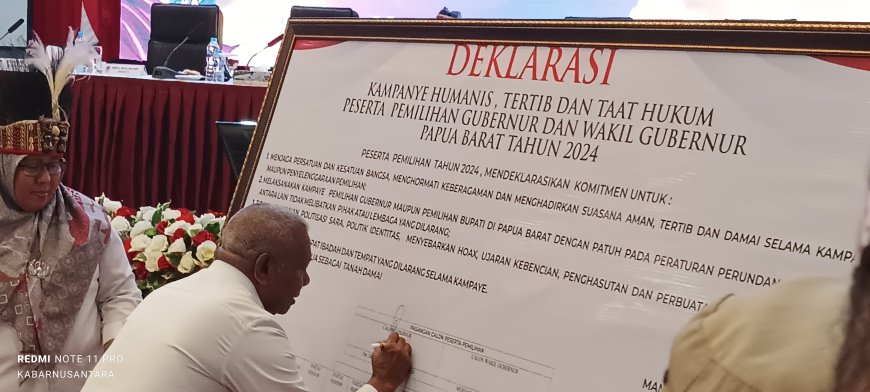 DEKLARASI
KAMPANYE HUMANIS, TERTIB DAN TAAT HUKUM
PESERTA PEMILIHAN GUBERNUR DAN WAKIL GUBERNUR
PAPUA BARAT TAHUN 2024
PESERTA PEMILIHAN TAHUN 2024, MENDEKLARASIKAN KOMITMEN UNTUK :
1. MENJAGA PERSATUAN DAN KESATUAN BANGSA, MENGHORMATI KEBERAGAMAN DAN MENGHADIRKAN SUASANA AMAN, TERTIB DAN DAMAI SELAMA KAMPA
MAUPUN PENYELENGGARAAN PEMILIHAN;
2. MELAKSANAKAN KAMPAYE PEMILIHAN GUBERNUR MAUPUN PEMILIHAN BUPATI DI PAPUA BARAT DENGAN PATUH PADA PERATURAN PERUNDAN
ANTARA LAIN TIDAK MELIBATKAN PIHAK ATAU LEMBAGA YANG DILARANG;
POLITISASI SARA, POLITIK IDENTITAS, MENYEBARKAN HOAX, UJARAN KEBENCIAN, PENGHASUTAN DAN PERBUAT
PAT IBADAH DAN TEMPAT YANG DILARANG SELAMA KAMPAYE.
A SEBAGAI TANAH DAMAI
PASANGAN CALON PESERTA PEMILIHAN
CALON WAKIL GUBERNUR
MAN
REDMI NOTE 11 PRO
KABARNUSANTARA